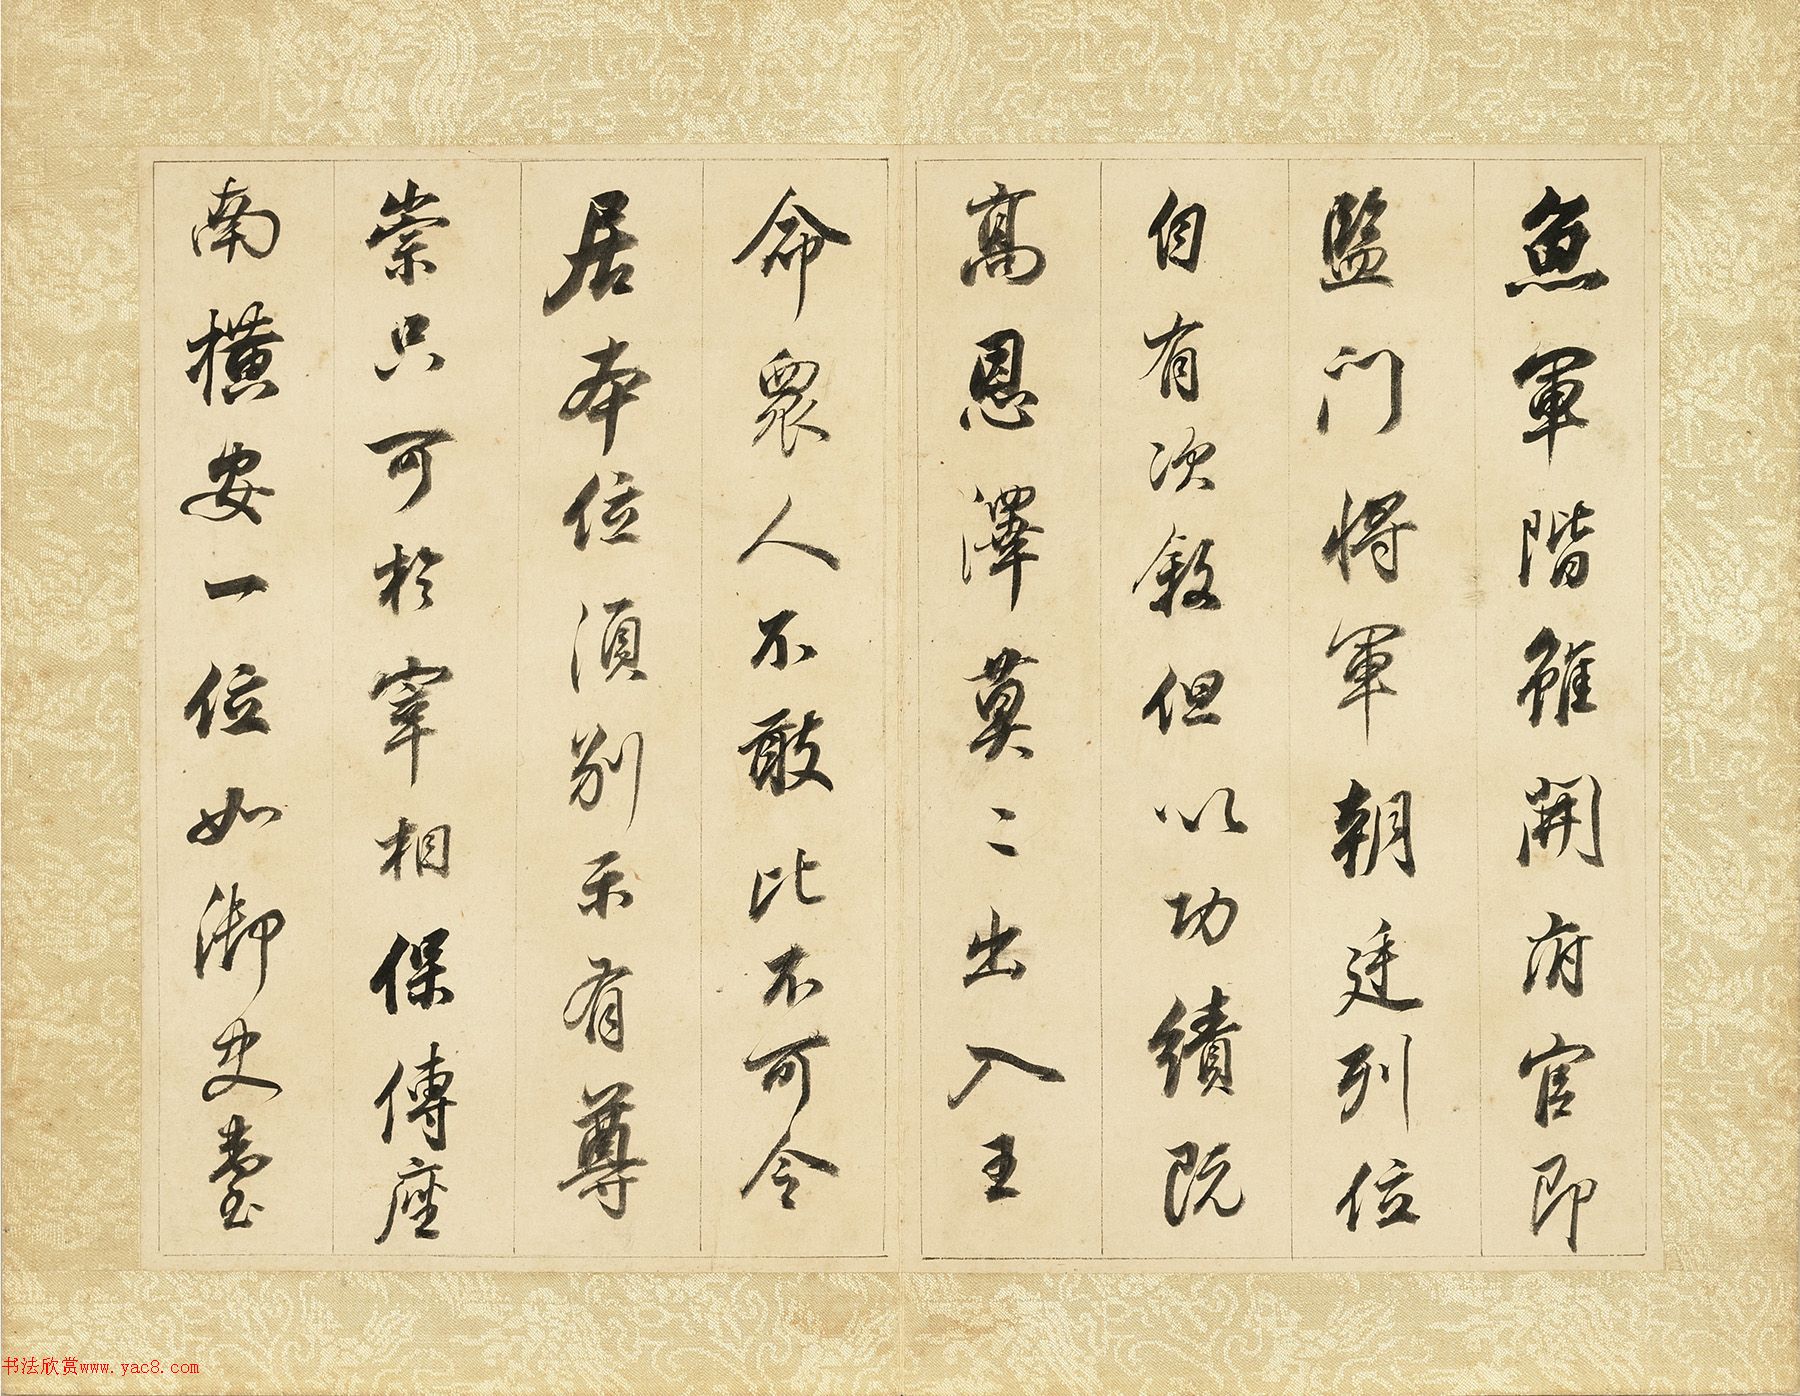 魚軍階雖開府官即
監門將軍朝廷列位
自有次敘但以功績既
高恩澤莫二出入王
命眾人不敢比不可令
居本位須別示有尊
崇只可於宰相保傅座
南橫安一位如御史臺
书法欣赏www.yac8.com